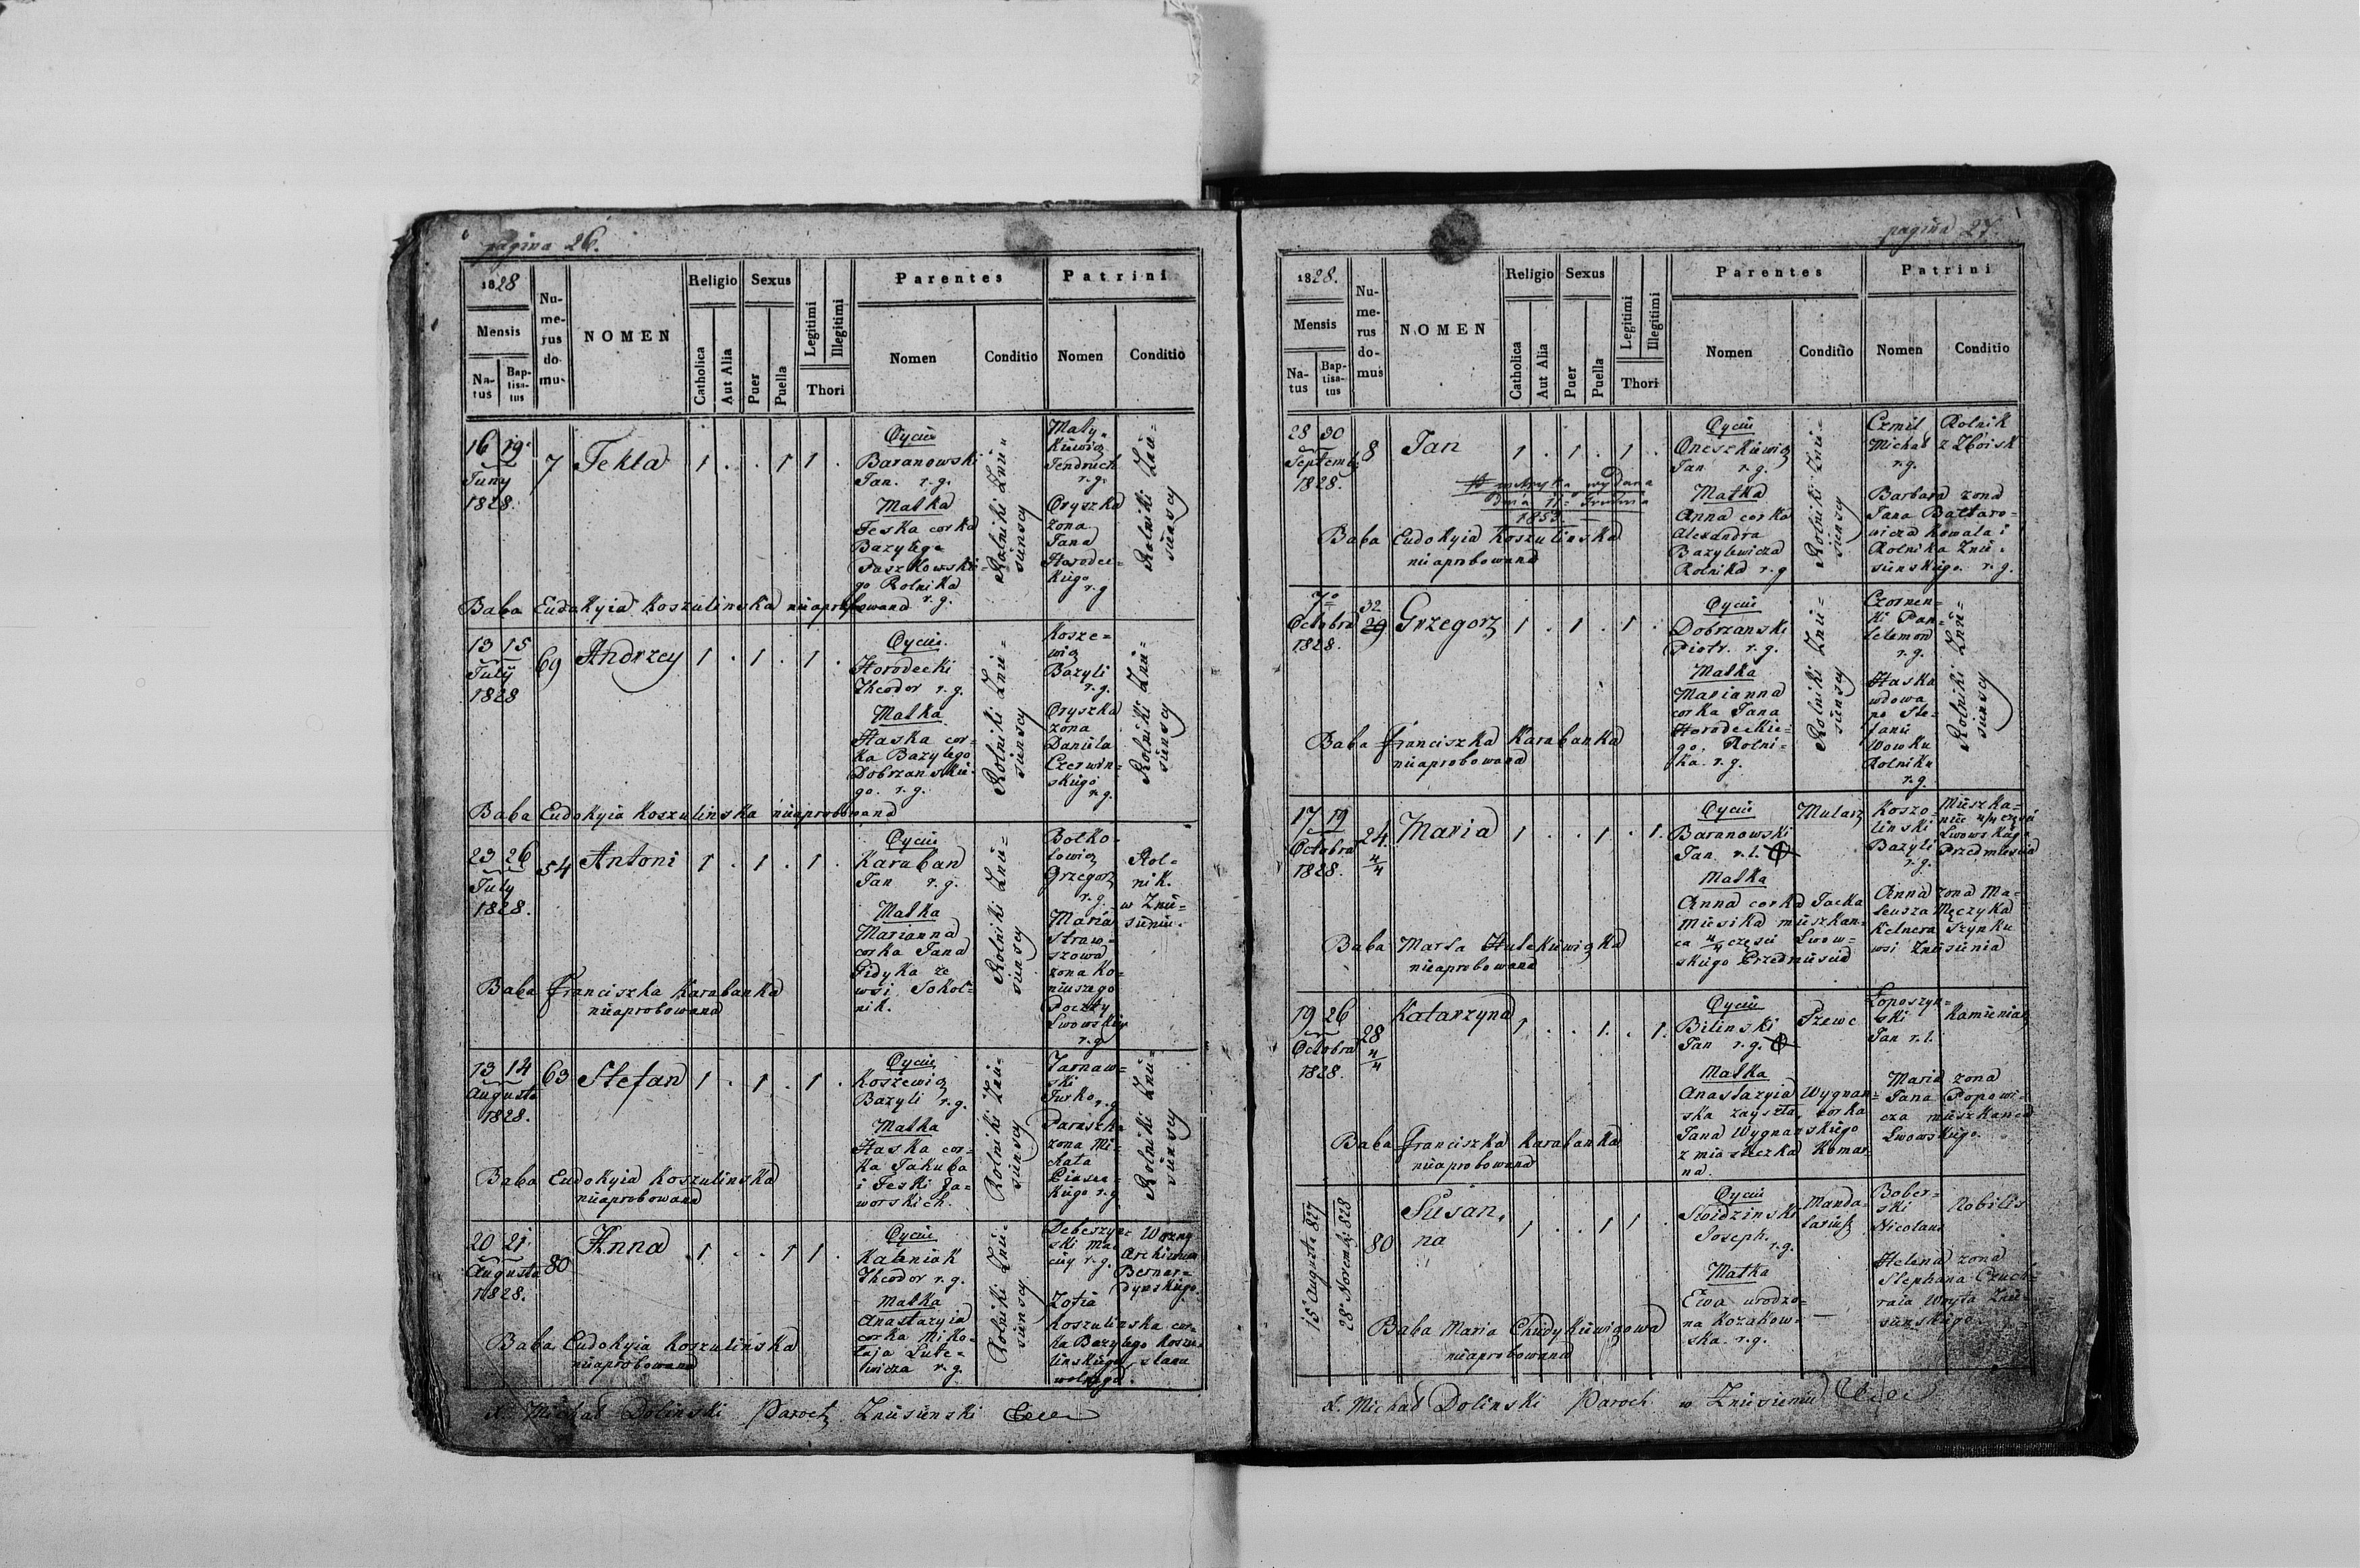 pagina 26.
1828
Mensis
Na-
tus
Bap-
tisa-
tus
Nu-
me-
rus
do-
mus
NOMEN
Religio
Catholica
Aut Alia
Sexus
Puer
Puella
Legitimi
Illegitimi
Thori
Parentes
Nomen
Conditio
Patrini
Nomen
Conditio
16 19
Juny
1828.
7
Tekla
1 . . 1 1 .
Oyciec
Baranowski
Jan. r.g.
Matka
Teska corka
Bazylego
Paszkowskie-
go Rolnika
r.g.
Rolniki Znie-
sienscy
Maty-
kiewicz
Jendruch
r.g.
Oryszka
zona
Jana
Horodec-
kiego
r.g
Rolniki Znie-
sienscy
Baba Eudokyia Koszulinska nieaprobowana
13 15
July
1828
69
Andrzey
1 . 1 . 1 .
Oyciec
Horodecki
Theodor r.g.
Matka
Haska cor-
ka Bazylego
Dobrzanskie-
go. r.g.
Rolniki Znie-
sienscy
Kosze-
wicz
Bazyli
r.g.
Oryszka
zona
Daniela
Czerwin-
skiego
r.g.
Rolniki Znie-
sienscy
Baba Eudokyia Koszulinska nieaprobowana
23 26
July
1828.
54
Antoni
1 . 1 . 1 .
Oyciec
Karaban
Jan r.g.
Matka
Marianna
corka Jana
Gidyka ze
wsi Sokol-
nik.
Rolniki Znie-
sienscy
Botko-
lowicz
Grzegorz
r.g.
Maria
Straw-
szowa
zona ko-
niuszego
Poczty
Lwowskiey
r.g
Rol-
nik.
w Znie-
sieniu.
Baba Franciszka Karabanka
nieaprobowana
13 14
Augusta
1828.
63
Stefan
1 . 1 . 1 .
Oyciec
Koszewicz
Bazyli r.g.
Matka
Haska cor-
ka Jakuba
i Teski Ja-
worskich.
Rolniki Znie-
sienscy
Jarnaw-
ski
Jurko r.g
Paraszka
zona Mi-
chala
kiego r.g
Rolniki Znie-
sienscy
Baba Eudokyia Koszulinska
nieaprobowana
20 21
Augusta
1828.
80
Anna
.1 . . 1 1 .
Oyciec
Kabaniak
Theodor r.g.
Matka
Anastazyia
corka Miko-
laja Lute-
wicza r.g
Rolniki Znie-
sienscy
Debeszyn-
ski Ma-
ciey r.g.
Zofia
Koszulinska cor-
ka Bazylego Koszu-
linskiego, stanu
wolnego.
Wozny
Archiwum
Bernar-
dynskiego.
Baba Eudokyia Koszulinska
nieaprobowana
X. Michal Dolinski Paroch Zniesienski
pagina 27.
1828.
Mensis
Na-
tus
Bap-
tisa-
tus
Nu-
me-
rus
do-
mus
NOMEN
Religio
Catholica
Aut Alia
Sexus
Puer
Puella
Legitimi
Illegitimi
Thori
Parentes
Nomen
Conditio
Patrini
Nomen
Conditio
28 30
Septemb.
1828.
8
Jan
1 . 1 . 1 .
metryka wydana
dnia 11 Grudnia
1853.
Oyciec
Oneszkiewicz
Jan r.g.
Matka
Anna corka
Alexandra
Bazylewicza
Rolnika r.g
Rolniki Znie-
sienscy
Czmil
Michal
r.g.
Rolnik
z Zboisk
Barbara zona
Jana Baltaro-
wicza kowala i
Rolnika Znie-
sienskiego. r.g.
Baba Eudokyia Koszulinska
nieaprobowana
7o
Octobra
1828.
32
29
Grzegorz
1 . 1 . 1 .
Oyciec
Dobrzanski
Piotr. r.g.
Matka
Marianna
corka Jana
Horodeckie-
go. Rolni-
ka. r.g.
Rolniki Znie-
sienscy
Czornen-
ki Pan-
telemon
r.g.
Haska
wdowa
po Ste-
fanie
Wowku
Rolniku
r.g.
Rolniki Znie-
sienscy
Baba Franciszka Karabanka
nieaprobowana
17 19
Octobra
1828.
24
4/4
Maria
1 . . 1 . 1.
Oyciec
Baranowski
Jan r.l.
Mularz
Matka
Anna corka Jacka
Musika mieszkan-
ca 4/4 czesci Lwow-
skiego Przedmiescia
Koszo-
linski
Bazyli
r.g.
Mieszka-
niec 4/4 czesci
Lwowskiego
Przedmiescia
Anna zona Ma-
teusza Męczyka
Kelnera szynku
wsi Zniesienia
Baba Marta Hulekiewiczka
nieaprobowana
19 26
Octobra
1828.
28
4/4
Katarzyna
1 . . 1. . 1.
Oyciec
Bilinski
Jan r.g.
Szewc
Matka
Anastazyia Wygnan-
ska zayszla corka
Jana Wygnanskiego
z miasteczka Komar-
na.
Loposzyn-
ski
Jan r.l.
Kamieniarz
Maria zona
Jana Popowi-
cza mieszkanca
Lwowskiego.
Baba Franciszka Karabanka
nieaprobowana
15o Augusta 827
28o Novemb: 828
80
Susan,
na
1 . . 1 1 .
Oyciec
Swidzinski
Joseph.
r.g.
Manda-
tariusz
Matka
Ewa urodzo-
na Kozakow-
ska. r.g.
—
Bober-
ski
Nicolaus
Nobilis
Helena zona
Stephana Czuch-
raia Woyta Znie-
sienskiego.
Baba Maria Chudykiewiczowa
nieaprobowana
X. Michal Dolinski Paroch w Zniesieniu